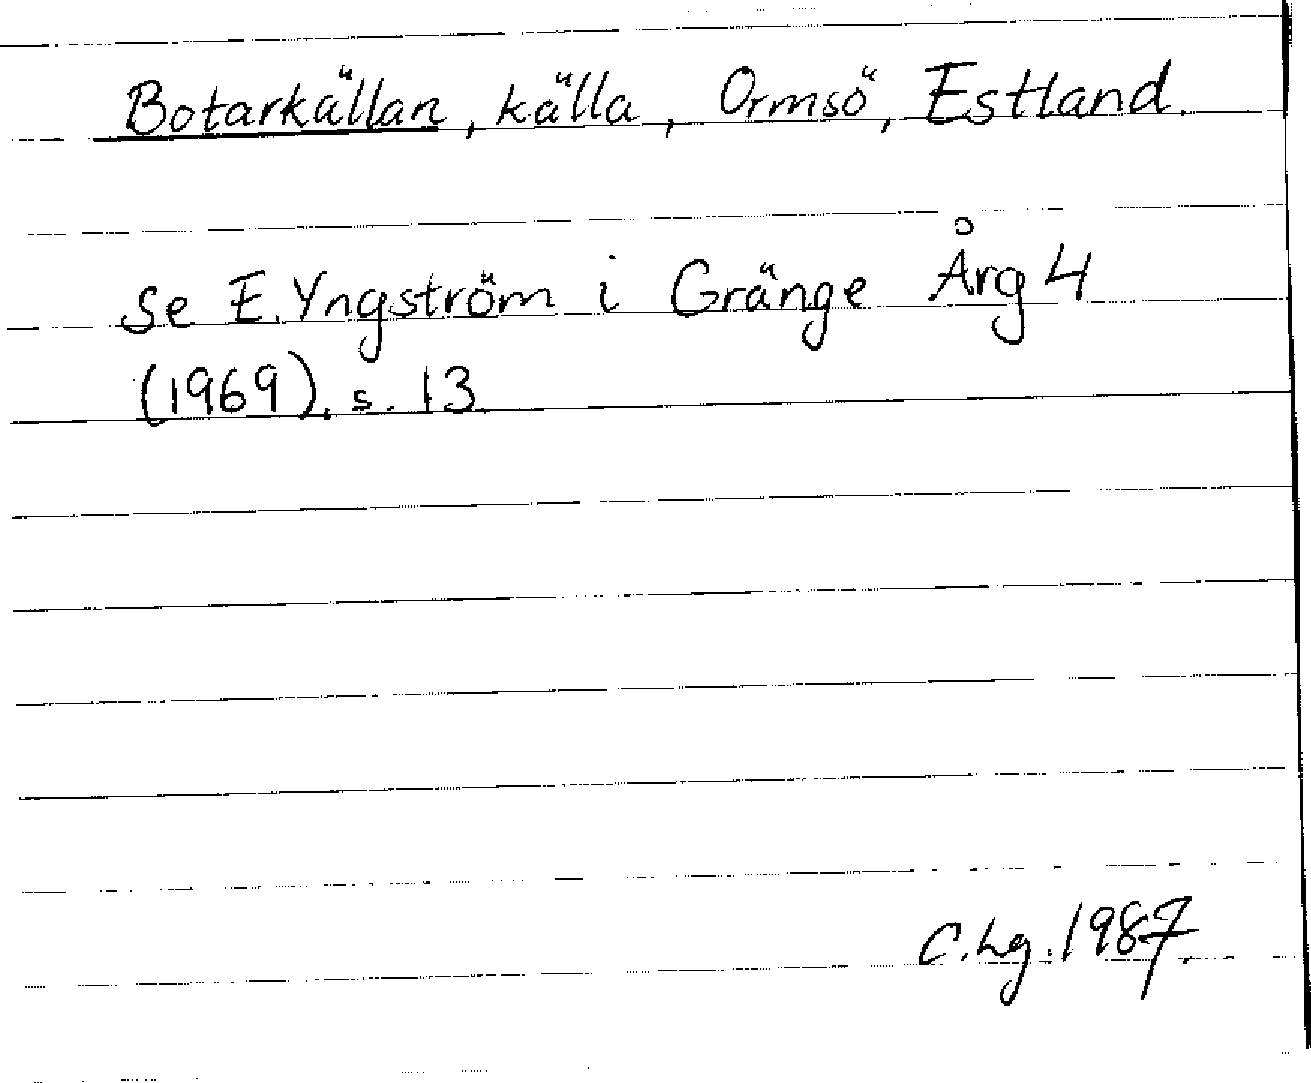 Botarkällan, källa, Ormsö, Estland.
Se E. Yngström i Gränge Årg 4
(1969), s. 13
C.Lg. 1987.